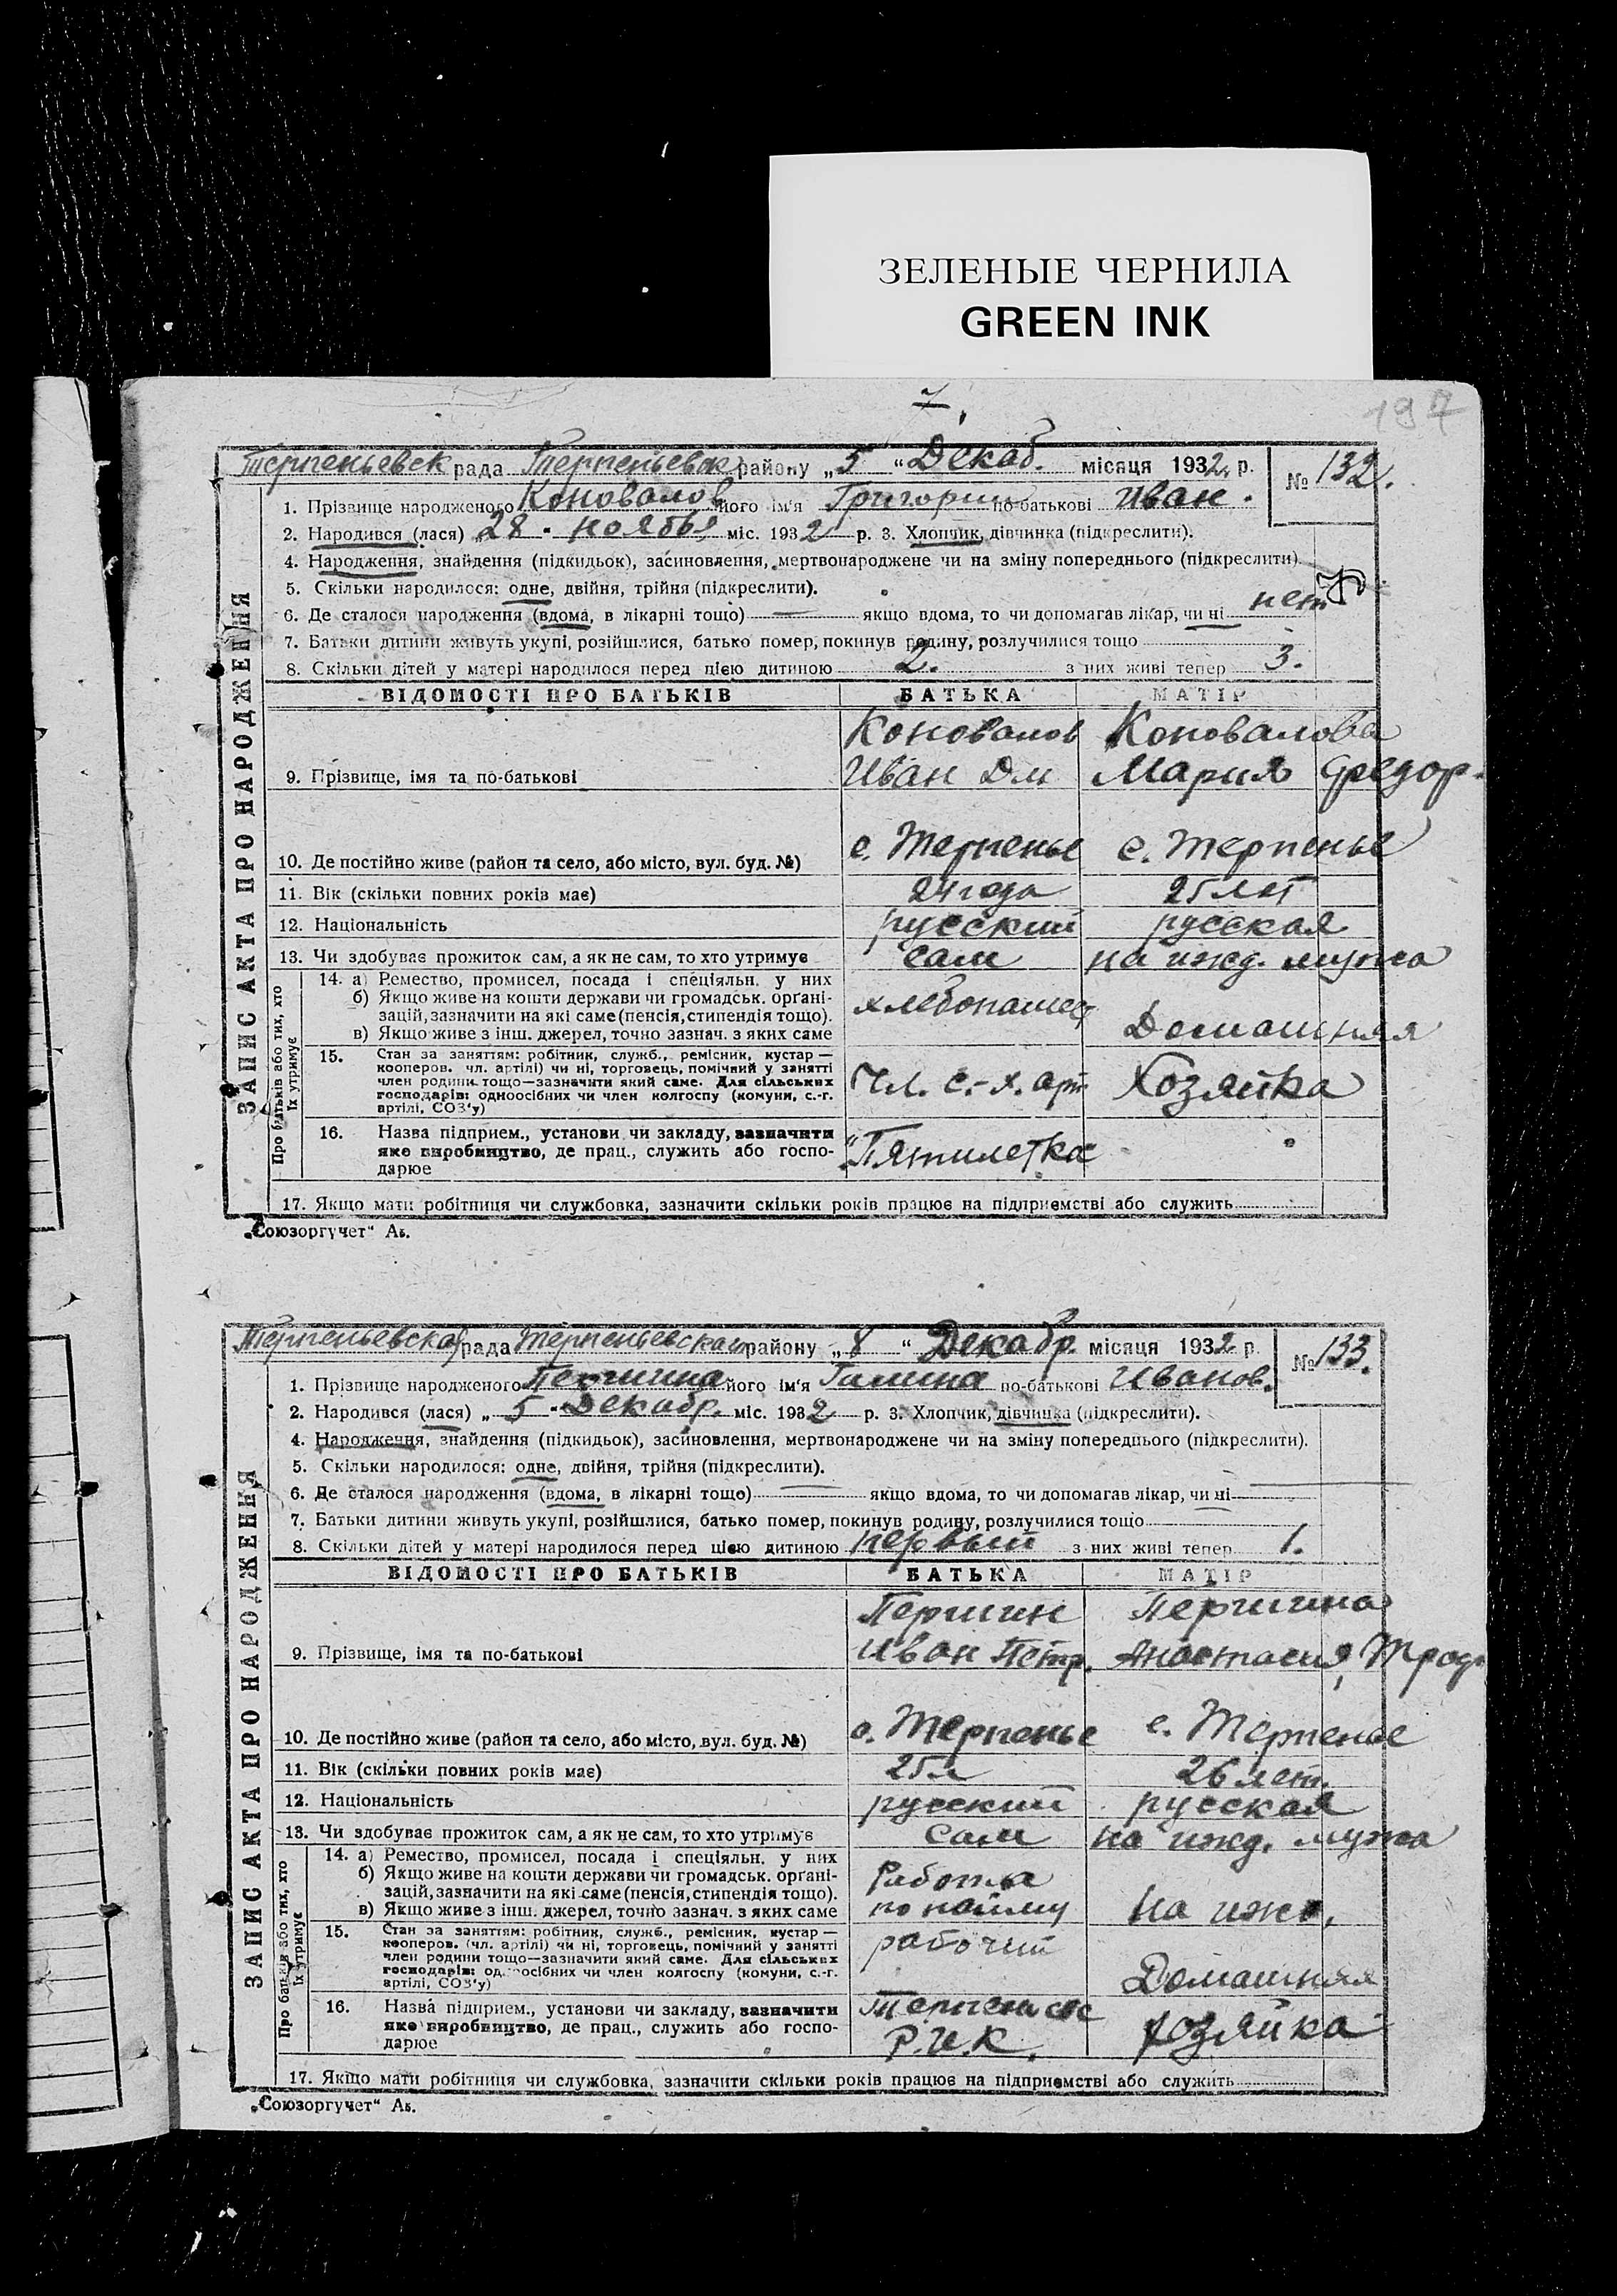 ЗЕЛЕНЫЕ ЧЕРНИЛА
GREEN INK
7.
197
Терпеньевск рада Терпеньевск району „5“ Декаб. місяця 1932 р.
№ 132.
1. Прізвище народженого Коновалов його ім'я Григорий по-батькові Иван.
2. Народився (лася) „28 - ноября міс. 1932 р. 3. Хлопчик, дівчинка (підкреслити).
4. Народження, знайдення (підкидьок), засиновлення, мертвонароджене чи на зміну попереднього (підкреслити).
5. Скільки народилося: одне, двійня, трійня (підкреслити).
6. Де сталося народження (вдома, в лікарні тощо) якщо вдома, то чи допомагав лікар, чи ні нет
7. Батьки дитини живуть укупі, розійшлися, батько помер, покинув родину, розлучилися тощо
8. Скільки дітей у матері народилося перед цією дитиною 2. з них живі тепер 3.
ВІДОМОСТІ ПРО БАТЬКІВ БАТЬКА МАТІР
Коновалов Коновалова
9. Прізвище, імя та по-батькові Иван Дм Мария Федор.
10. Де постійно живе (район та село, або місто, вул. буд. №) с. Терпенье с. Терпенье
11. Вік (скільки повних років має) 24 года 25 лет
12. Національність русский русская
13. Чи здобуває прожиток сам, а як не сам, то хто утримує сам на ижд. мужа
ЗАПИС АКТА ПРО НАРОДЖЕННЯ
Про батьків або тих, хто їх утримує
14. а) Ремество, промисел, посада і спеціяльн. у них
б) Якщо живе на кошти держави чи громадськ. орґані-
зацій, зазначити на які саме (пенсія, стипендія тощо).
в) Якщо живе з інш. джерел, точно зазнач. з яких саме
хлебопашец Домашняя
15. Стан за заняттям: робітник, служб., ремісник, кустар —
кооперов. чл. артілі) чи ні, торговець, помічний у занятті
член родини тощо—зазначити який саме. Для сільських
господарів: одноосібних чи член колгоспу (комуни, с.-г.
артілі, СОЗ'у)
Чл. с.-х. арт. Хозяйка
16. Назва підприєм., установи чи закладу, зазначити
яке виробництво, де прац., служить або госпо-
дарює
„Пятилетка
17. Якщо мати робітниця чи службовка, зазначити скільки років працює на підприємстві або служить
„Союзоргучет“ Аб.
Терпеньевская рада Терпеньевская району „8“ Декабр. місяця 1932 р.
№ 133.
1. Прізвище народженого Першина його ім'я Галина по-батькові Иванов.
2. Народився (лася) „5 - Декабр. міс. 1932 р. 3. Хлопчик, дівчинка (підкреслити).
4. Народження, знайдення (підкидьок), засиновлення, мертвонароджене чи на зміну попереднього (підкреслити).
5. Скільки народилося: одне, двійня, трійня (підкреслити).
6. Де сталося народження (вдома, в лікарні тощо) якщо вдома, то чи допомагав лікар, чи ні
7. Батьки дитини живуть укупі, розійшлися, батько помер, покинув родину, розлучилися тощо
8. Скільки дітей у матері народилося перед цією дитиною первый з них живі тепер 1.
ВІДОМОСТІ ПРО БАТЬКІВ БАТЬКА МАТІР
Першин Першина
9. Прізвище, імя та по-батькові Иван Петр. Анастасия
10. Де постійно живе (район та село, або місто, вул. буд. №) с. Терпенье с. Терпенье
11. Вік (скільки повних років має) 25 л 26 лет.
12. Національність русский русская
13. Чи здобуває прожиток сам, а як не сам, то хто утримує сам на ижд. мужа
ЗАПИС АКТА ПРО НАРОДЖЕННЯ
Про батьків або тих, хто їх утримує
14. а) Ремество, промисел, посада і спеціяльн. у них
б) Якщо живе на кошти держави чи громадськ. орґані-
зацій, зазначити на які саме (пенсія, стипендія тощо).
в) Якщо живе з інш. джерел, точно зазнач. з яких саме
Работа
по найму на ижд.
15. Стан за заняттям: робітник, служб., ремісник, кустар —
кооперов. (чл. артілі) чи ні, торговець, помічний у занятті
член родини тощо—зазначити який саме. Для сільських
господарів: одноосібних чи член колгоспу (комуни, с.-г.
артілі, СОЗ'у)
рабочий Домашняя
16. Назва підприєм., установи чи закладу, зазначити
яке виробництво, де прац., служить або госпо-
дарює
Р.И.К. хозяйка
17. Якщо мати робітниця чи службовка, зазначити скільки років працює на підприємстві або служить
„Союзоргучет“ Аб.